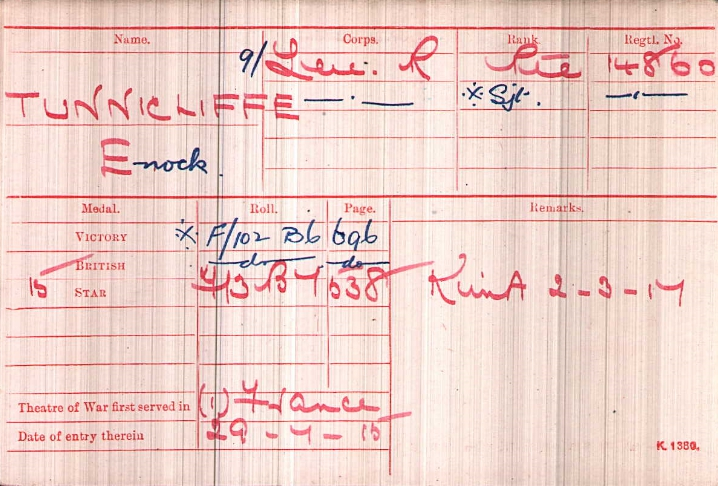 Name. Corps. Rank. Regtl. No.
9/ Leic. R Pte 14860
TUNNICLIFFE — · — ※ Sjt. — · —
Enock.
Medal. Roll. Page. Remarks.
VICTORY ※ F/102 B6 696
BRITISH do do
15 STAR 538 K in A 2-3-17
Theatre of War first served in (1) France
Date of entry therein 29-7-15
K. 1380.